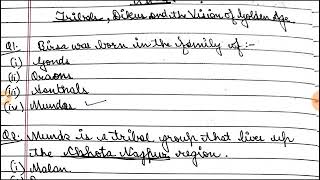 Tribals, Dikus and the Vision of Golden Age
Q1. Birsa was born in the family of :-
(i) Gonds
(ii) Oraons
(iii) Santhals
(iv) Mundas ✓
Q2. Munda is a tribal group that lives up
the Chhota Nagpur region.
(i) Malan